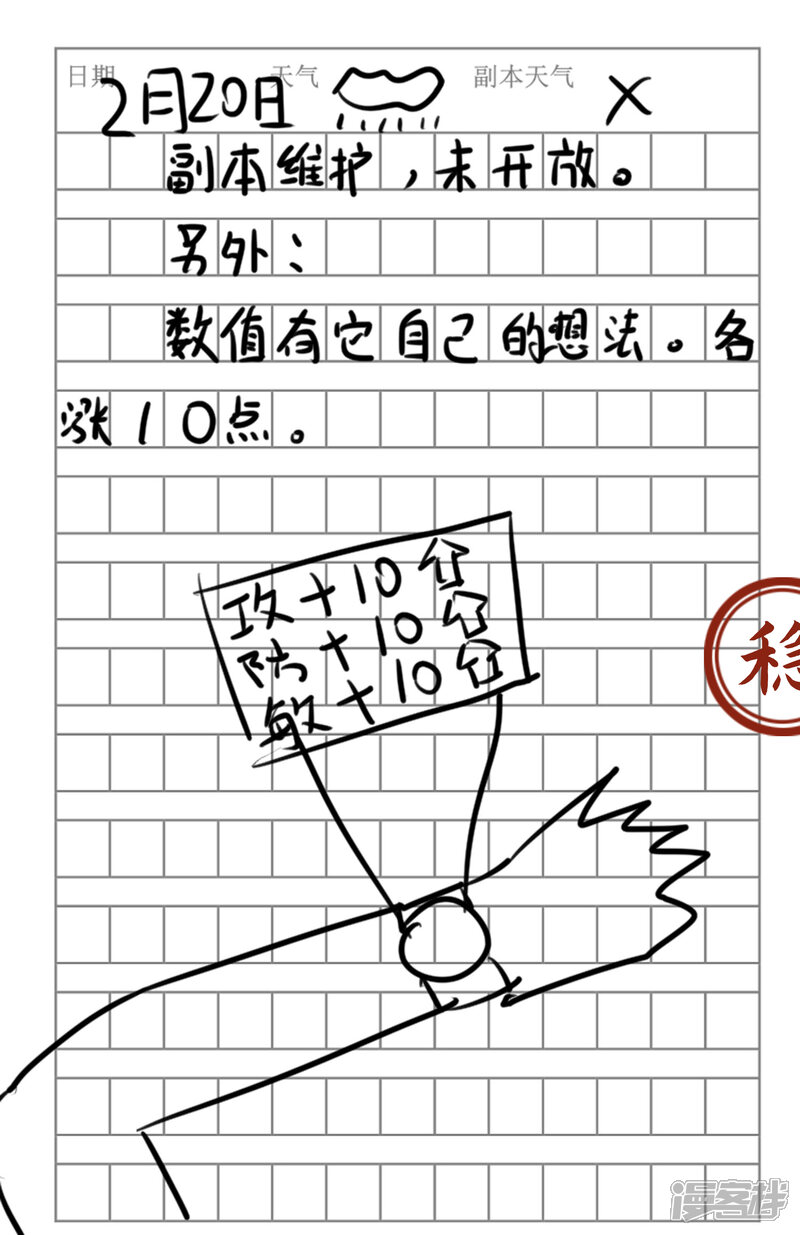 日期 天气 副本天气
2月20日 X
副本维护，未开放。
另外：
数值有它自己的想法。各
涨10点。
攻+10
防+10
敏+10
稳
漫客栈